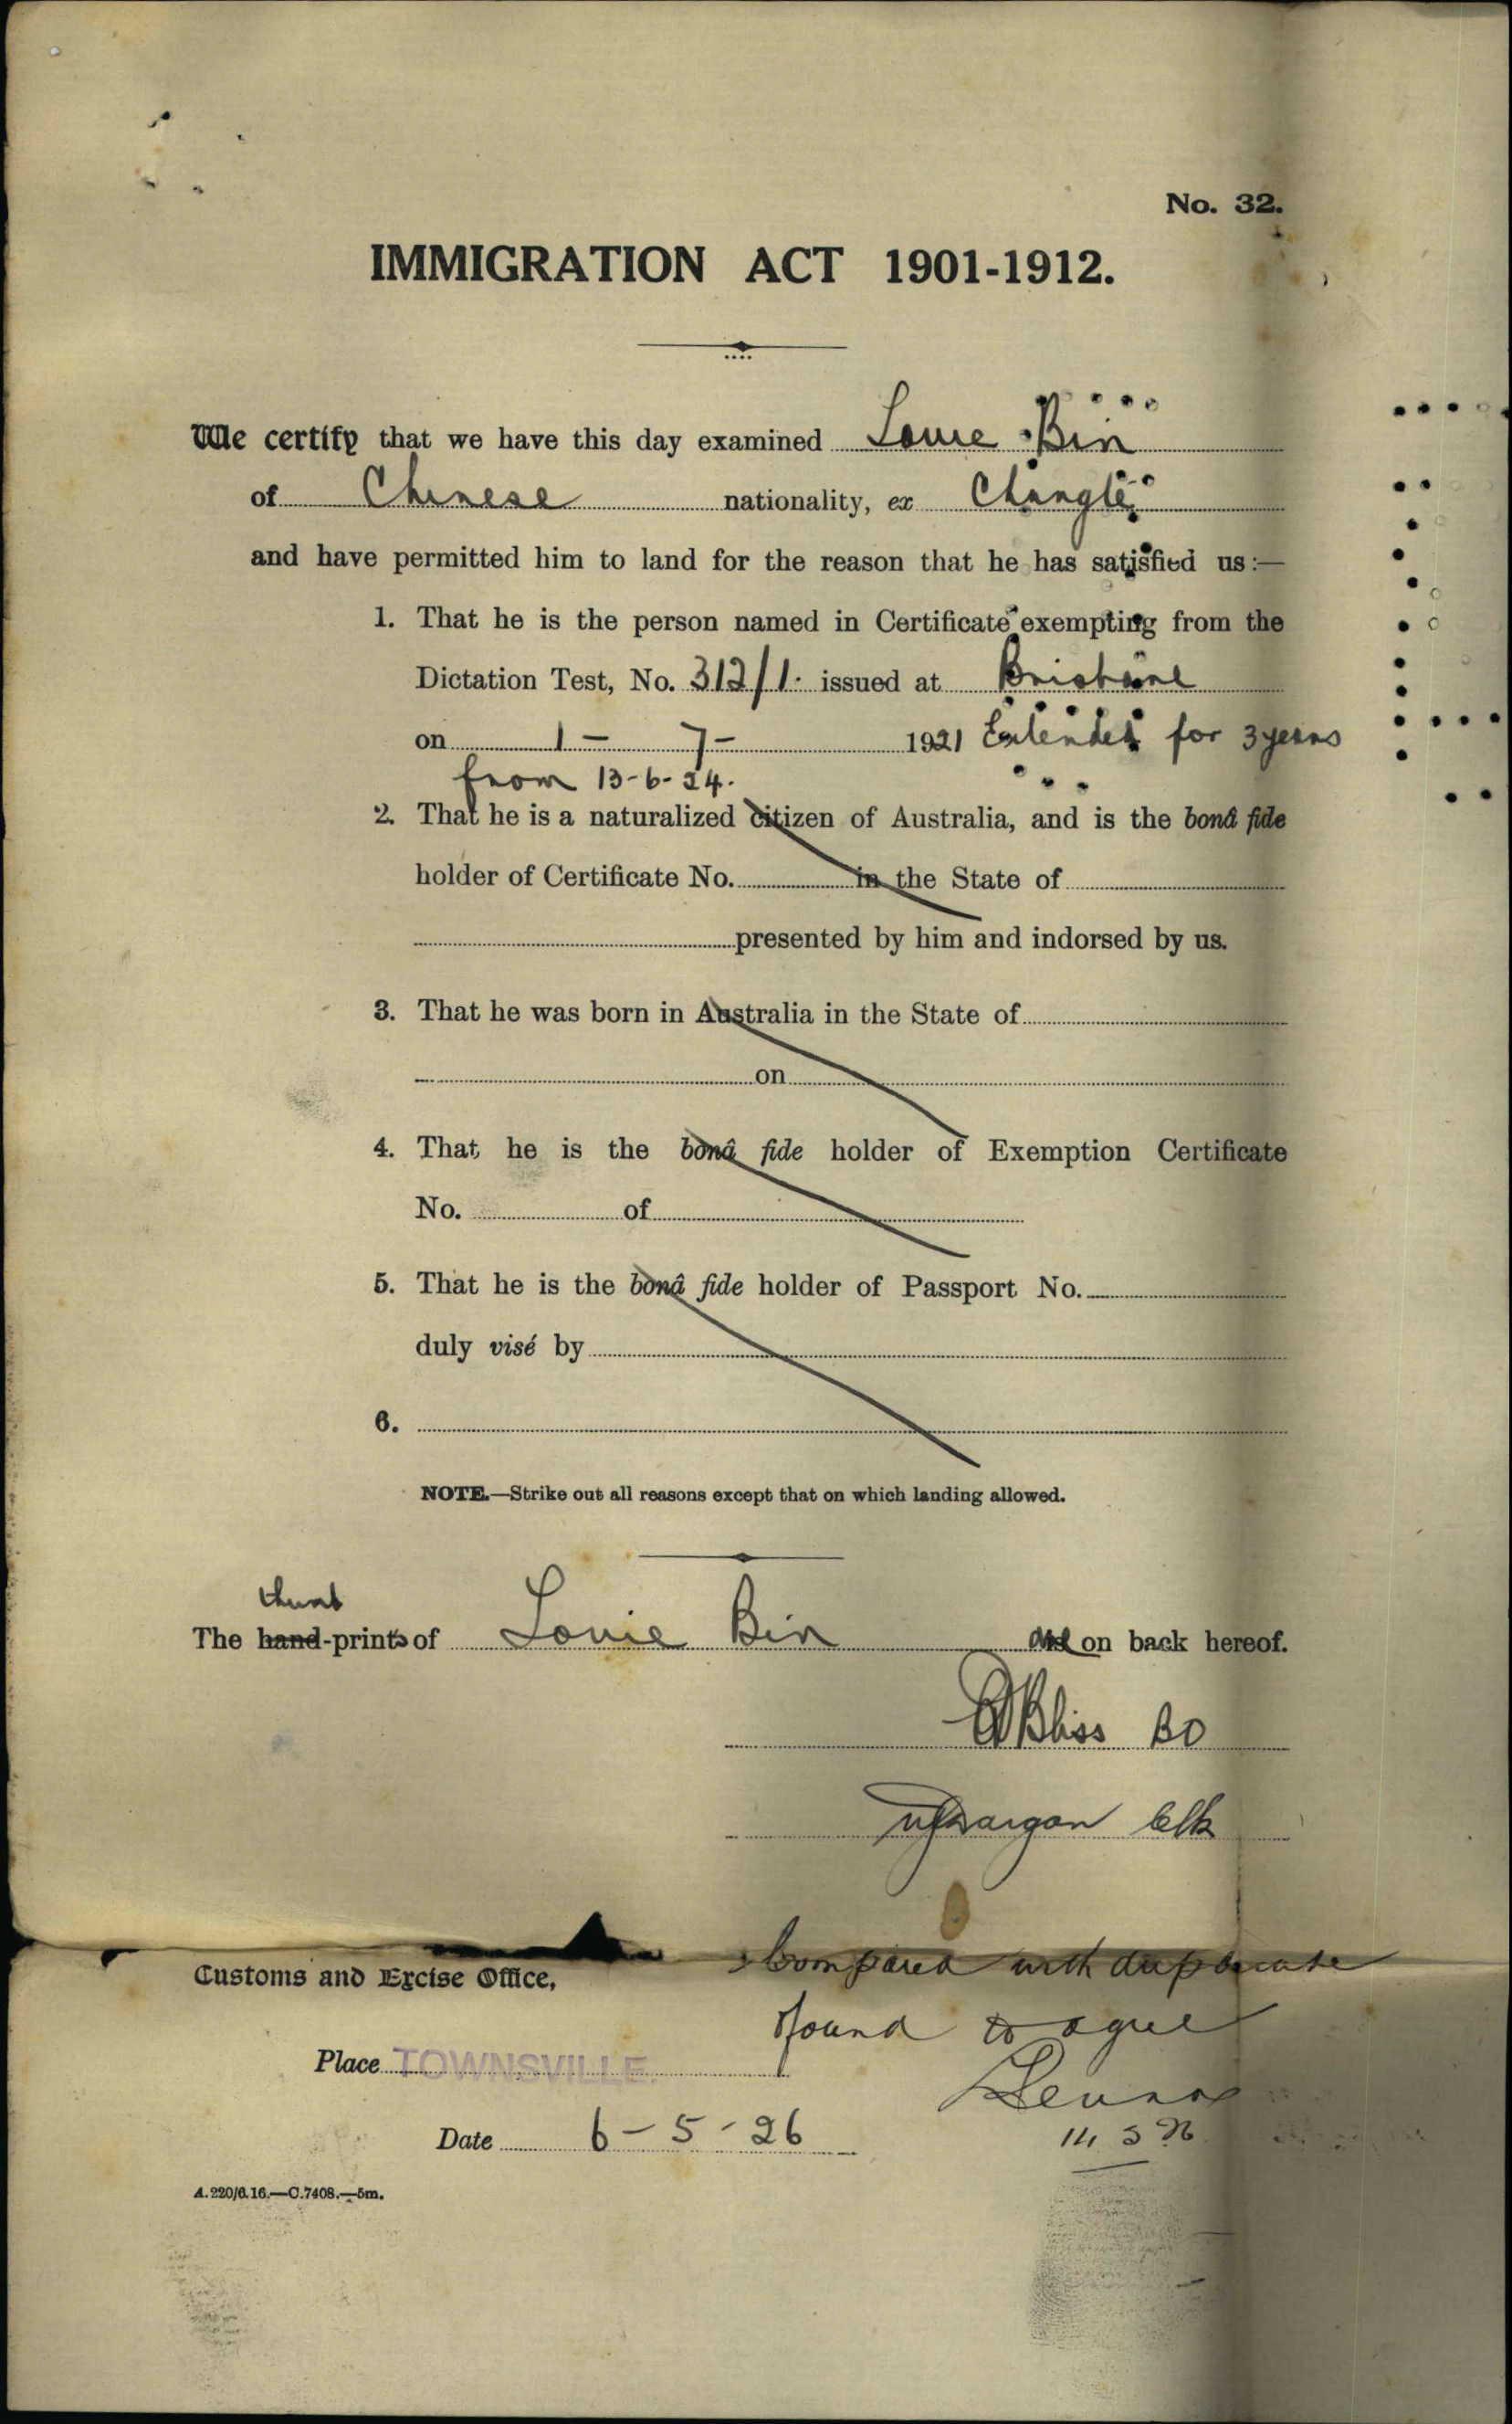 No. 32.
IMMIGRATION ACT 1901-1912.
We certify that we have this day examined Louie Bin
of Chinese nationality, ex Changte
and have permitted him to land for the reason that he has satisfied us:—
1. That he is the person named in Certificate exempting from the
Dictation Test, No. 312/1. issued at Brisbane
on 1 - 7 - 1921 Extended for 3 years
from 13-6-24.
2. That he is a naturalized citizen of Australia, and is the bonâ fide
holder of Certificate No. in the State of
presented by him and indorsed by us.
3. That he was born in Australia in the State of
on
4. That he is the bonâ fide holder of Exemption Certificate
No. of
5. That he is the bonâ fide holder of Passport No.
duly visé by
6.
NOTE.—Strike out all reasons except that on which landing allowed.
thumb
The hand-prints of Louie Bin are on back hereof.
Bliss BO
Clk
Compared with duplicate
Customs and Excise Office,
found to agree
Place TOWNSVILLE.
Date 6-5-26
14 5 26
A.220/6.16.—C.7408.—5m.